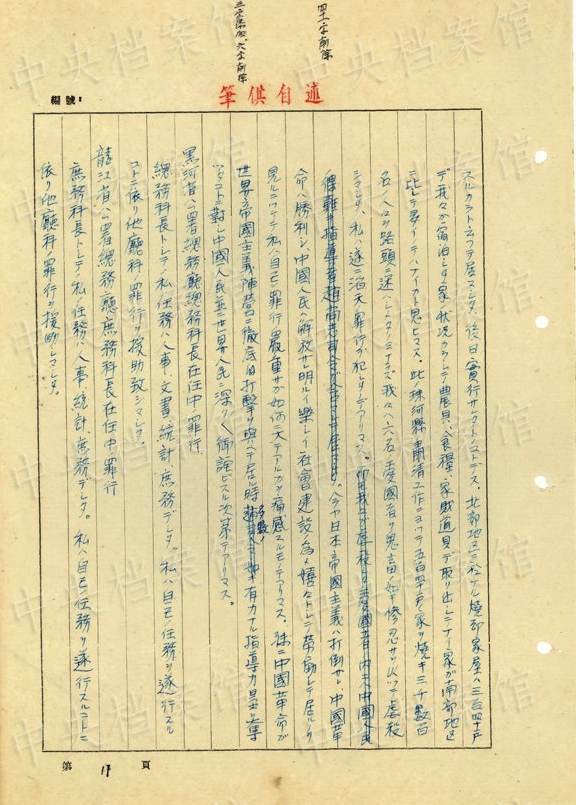 四十二字削除
筆供自述
編號：
スルカラト云フテ居マシタ。後日實行サレタトノコトデス。北部地区ニ於ケル燒却家屋ハ三百四十戸
デ我々ガ宿泊シタ家ノ狀況カラシテ農具、食糧、家財道具
ニ比シテ多イノデハナイカト思ヒマス。此ノ珠河縣肅清工作ニヨツテ五百四十戸ノ家ヲ燒キ三千數百
名ノ人々ヲ路頭ニ迷ハシタノミナラズ我々ハ六名ノ愛國者ヲ鬼畜ノ如キ慘忍サヲ以ツテ虐殺
シマシタ。私ハ遂ニ滔天ノ罪行ヲ犯シタノデアリマス。
今ヤ日本帝國主義ハ打倒サレ中國革
命ハ勝利シ中國人民ハ解放サレ明ルイ樂シイ社會建設ノ為メ嬉々トシテ勞働シテ居ルヲ
見ルニツケテ私ハ自己ノ罪行ノ嚴重サガ如何ニ大デアルカヲ痛感スルモノデアリマス。殊ニ中國革命ガ
世界ノ帝國主義陣營ニ徹底的打擊ヲ與ヘテ居ル時
多數ノ
如キ有力ナル指導力量ヲ奪
ツタコトニ對シ中國人民並ニ世界人民ニ深ク御詫ビスル次第デアリマス。
黑河省公署總務廳總務科長在任中ノ罪行
總務科長トシテノ私ノ任務ハ人事、文書、統計、庶務デシタ。私ハ自己ノ任務ヲ遂行スル
コトニ依リ他廳科ノ罪行ヲ援助致シマシタ。
龍江省公署總務廳庶務科長在任中ノ罪行
庶務科長トシテノ私ノ任務ハ人事、統計、庶務デシタ。私ハ自己ノ任務ヲ遂行スルコトニ
依リ他廳科ノ罪行ヲ援助シマシタ。
第 17 頁
中央档案馆